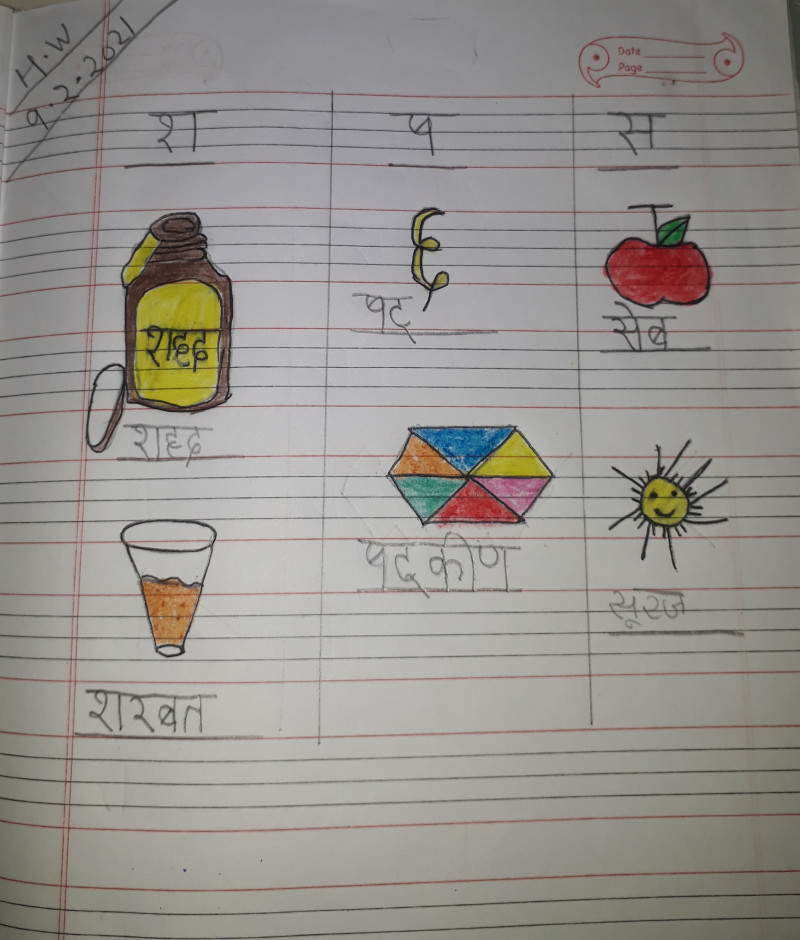 H.W
9.2.2021
Date
Page
श ष स
शहद
६
षट्
सेब
शहद
षट्कोण
सूरज
शरबत